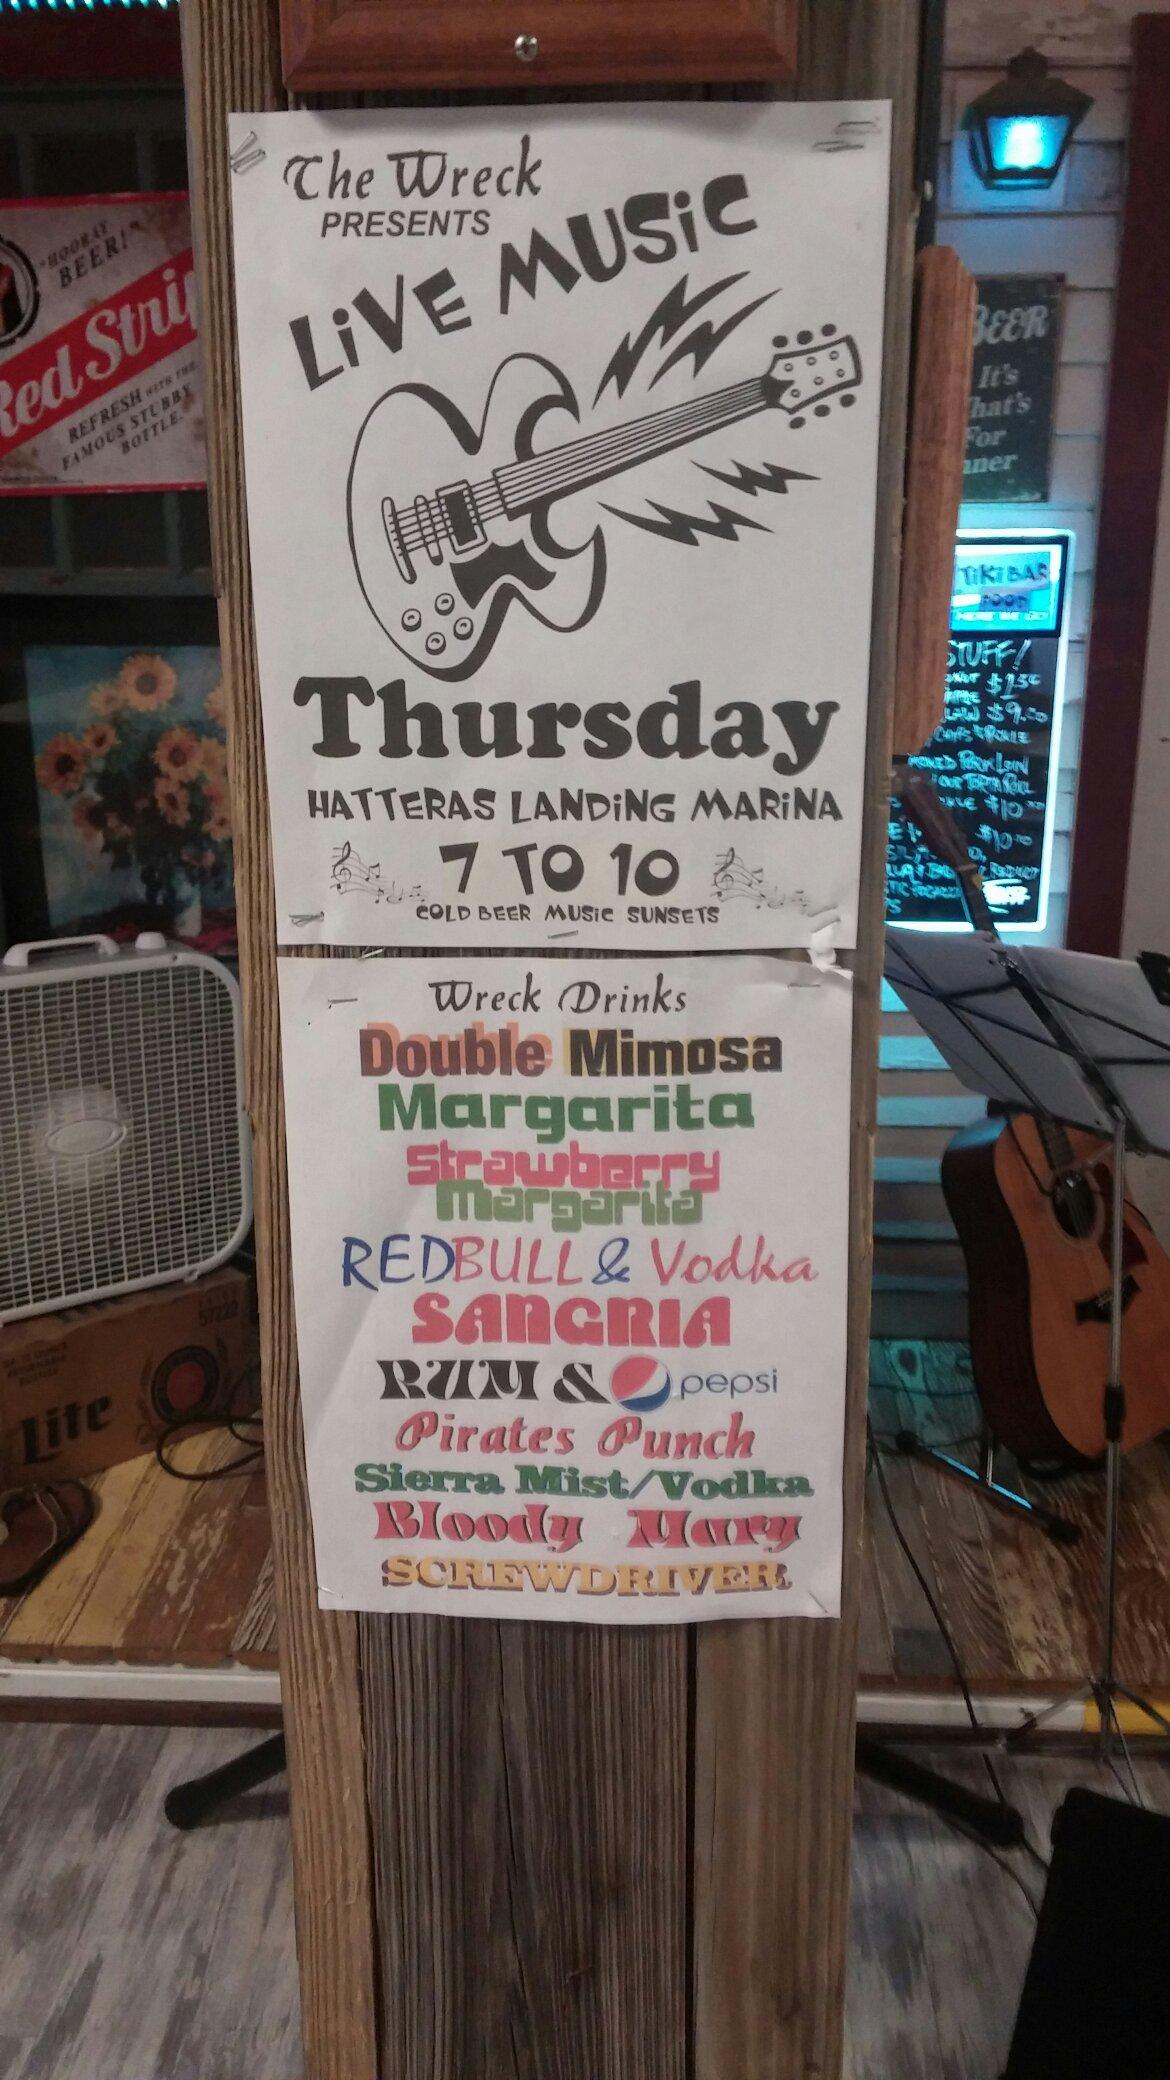 The Wreck
PRESENTS
LiVE MUSiC
Thursday
HATTERAS LANDiNG MARiNA
7 TO 10
COLD BEER MUSiC SUNSETS
Wreck Drinks
Double Mimosa
Margarita
Strawberry
Margarita
REDBULL & Vodka
SANGRIA
RUM & pepsi
Pirates Punch
Sierra Mist/Vodka
Bloody Mary
SCREWDRIVER
"HOORAY
BEER!"
Red Strip
REFRESH WITH THE
FAMOUS STUBBY
BOTTLE.
Lite
57222
BEER
It's
For
TiKi BAR
FOOD
STUFF!
$9.00
$10.00
$10.00